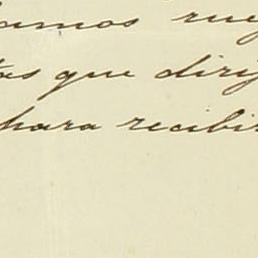 lamos rue
tos que dirij
para recibir